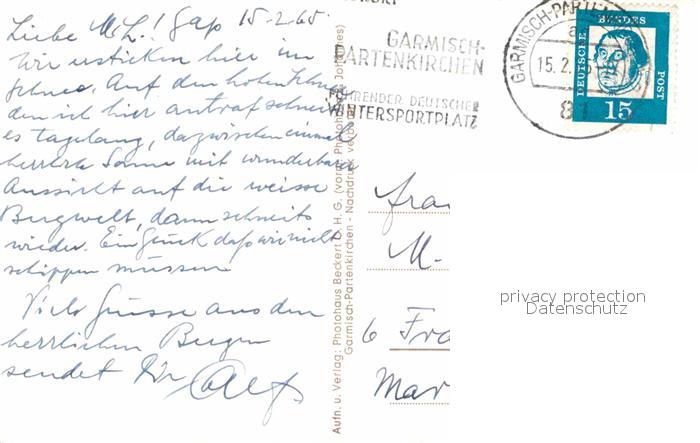 Liebe M.L.! Gap 15-2-65.
Wir ersticken hier im
Schnee. Auf den hohen Schnee
den ich hier antraf schneit
es tagelang, dazwischen einmal
herrliche Sonne mit wunderbarer
Aussicht auf die weisse
Bergwelt, dann schneits
wieder. Ein Glück dass wir nicht
schippen müssen
Viele Grüsse aus den
herrlichen Bergen
sendet Dir
GARMISCH-
PARTENKIRCHEN
FÜHRENDER DEUTSCHER
WINTERSPORTPLATZ
GARMISCH-PARTEN
a
15.2.
81
DEUTSCHE
BUNDES
POST
15
Aufn. u. Verlag: Photohaus Beckert o. H. G. (vorm. Photohaus Johannes)
Garmisch-Partenkirchen - Nachdruck verboten
Frau
M.
6 Fra
Mar
privacy protection
Datenschutz